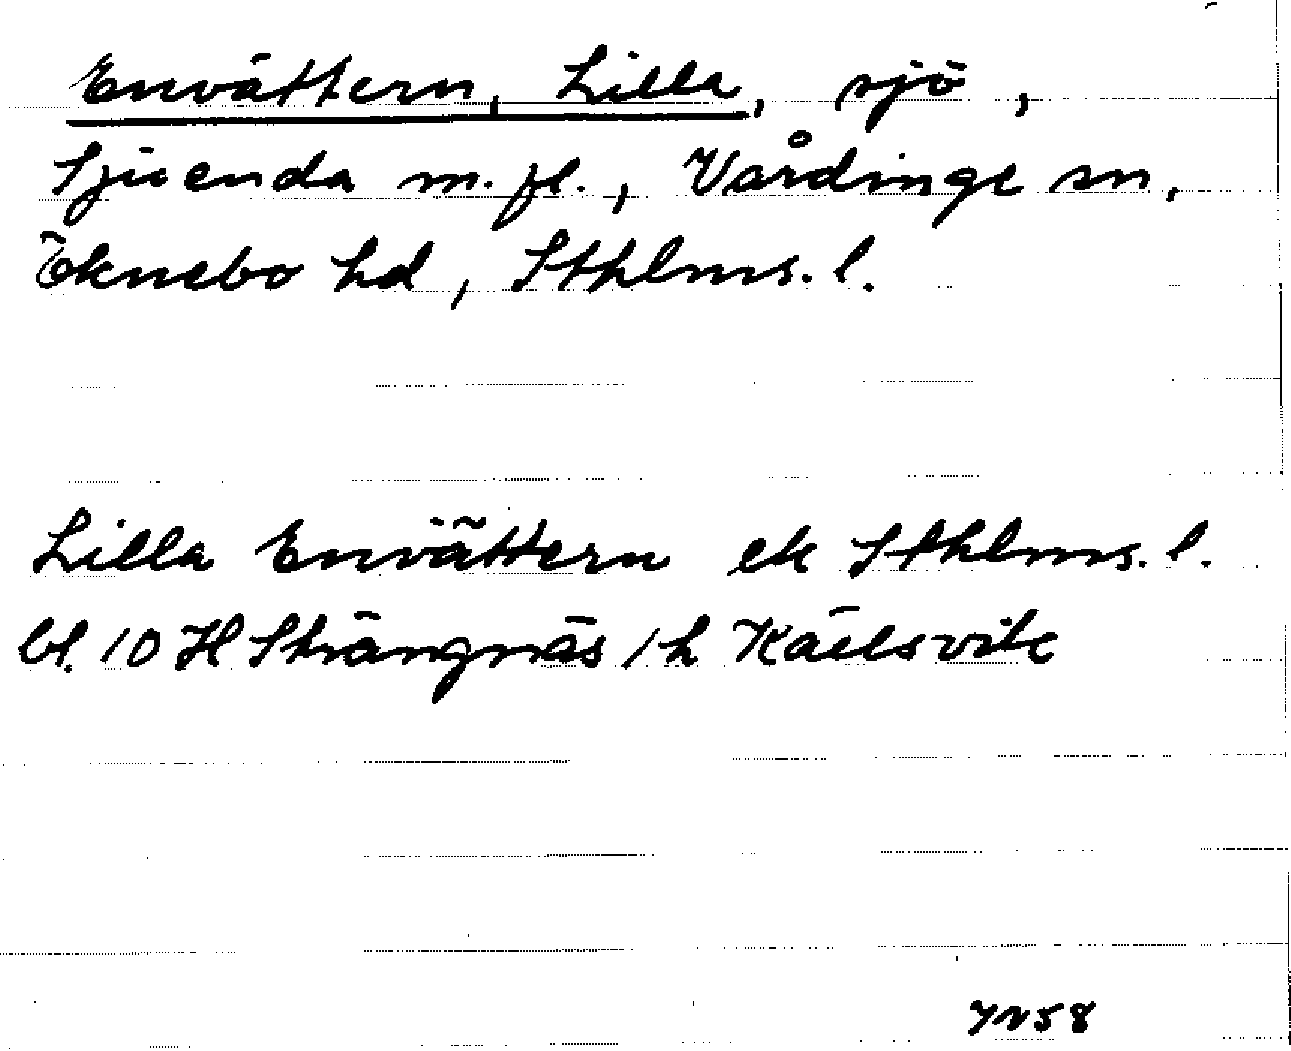 Envättern, Lilla, sjö,
Sjuenda m.fl., Vårdinge sn,
Öknebo hd, Sthlms. l.
Lilla Envättern ek Sthlms. l.
bl. 10 H Strängnäs / h
58